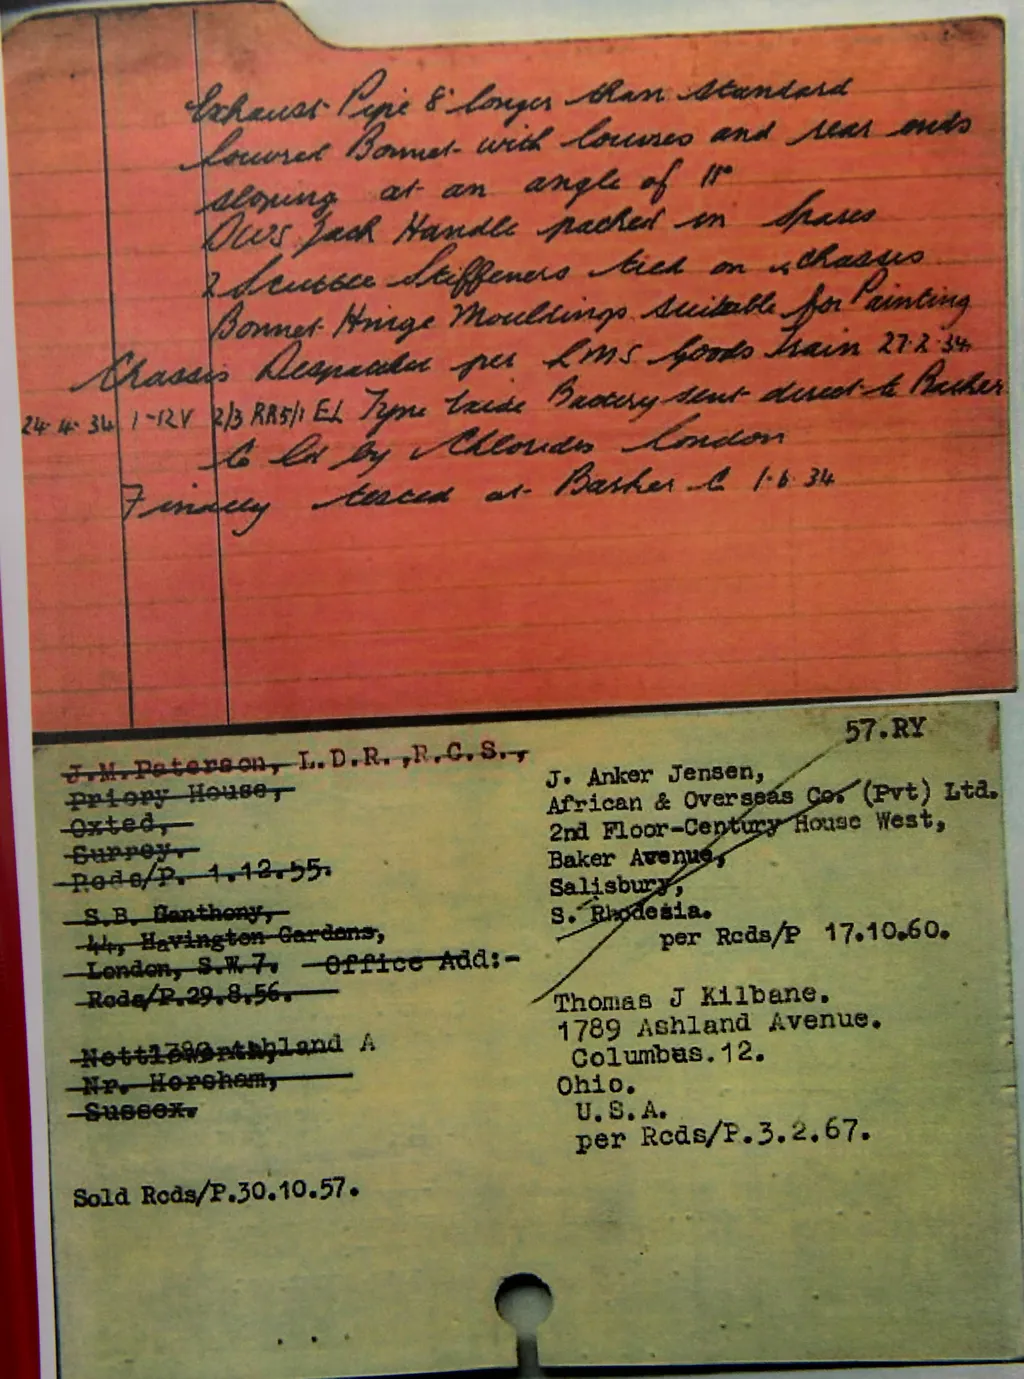 Exhaust Pipe 8" longer than standard
Louvred Bonnet with louvres and rear ends
sloping at an angle of 11°
DWS Jack Handle packed in Spares
2 Scuttle Stiffeners tied on chassis
Bonnet Hinge Mouldings suitable for Painting
Chassis Despatched per LMS Goods Train 27.2.34
24.4.34 1-12V 2/3 RR5/1 EL Type Exide Battery sent direct to Barker
& Co Ld by Chlorides London
Finally tested at Barker & Co 1.6.34
57.RY
J.M.Paterson, L.D.R.,R.C.S.,
Priory House,
Oxted,
Surrey.
Rcds/P. 1.12.55.
S.B. Ganthony,
44, Havington Gardens,
London, S.W.7. Office Add:-
Rcds/P.29.8.56.
Nettleworth,
1789 Ashland A
Nr. Horsham,
Sussex.
Sold Rcds/P.30.10.57.
J. Anker Jensen,
African & Overseas Co. (Pvt) Ltd.
2nd Floor-Century House West,
Baker Avenue,
Salisbury,
S. Rhodesia.
per Rcds/P 17.10.60.
Thomas J Kilbane.
1789 Ashland Avenue.
Columbus.12.
Ohio.
U.S.A.
per Rcds/P.3.2.67.